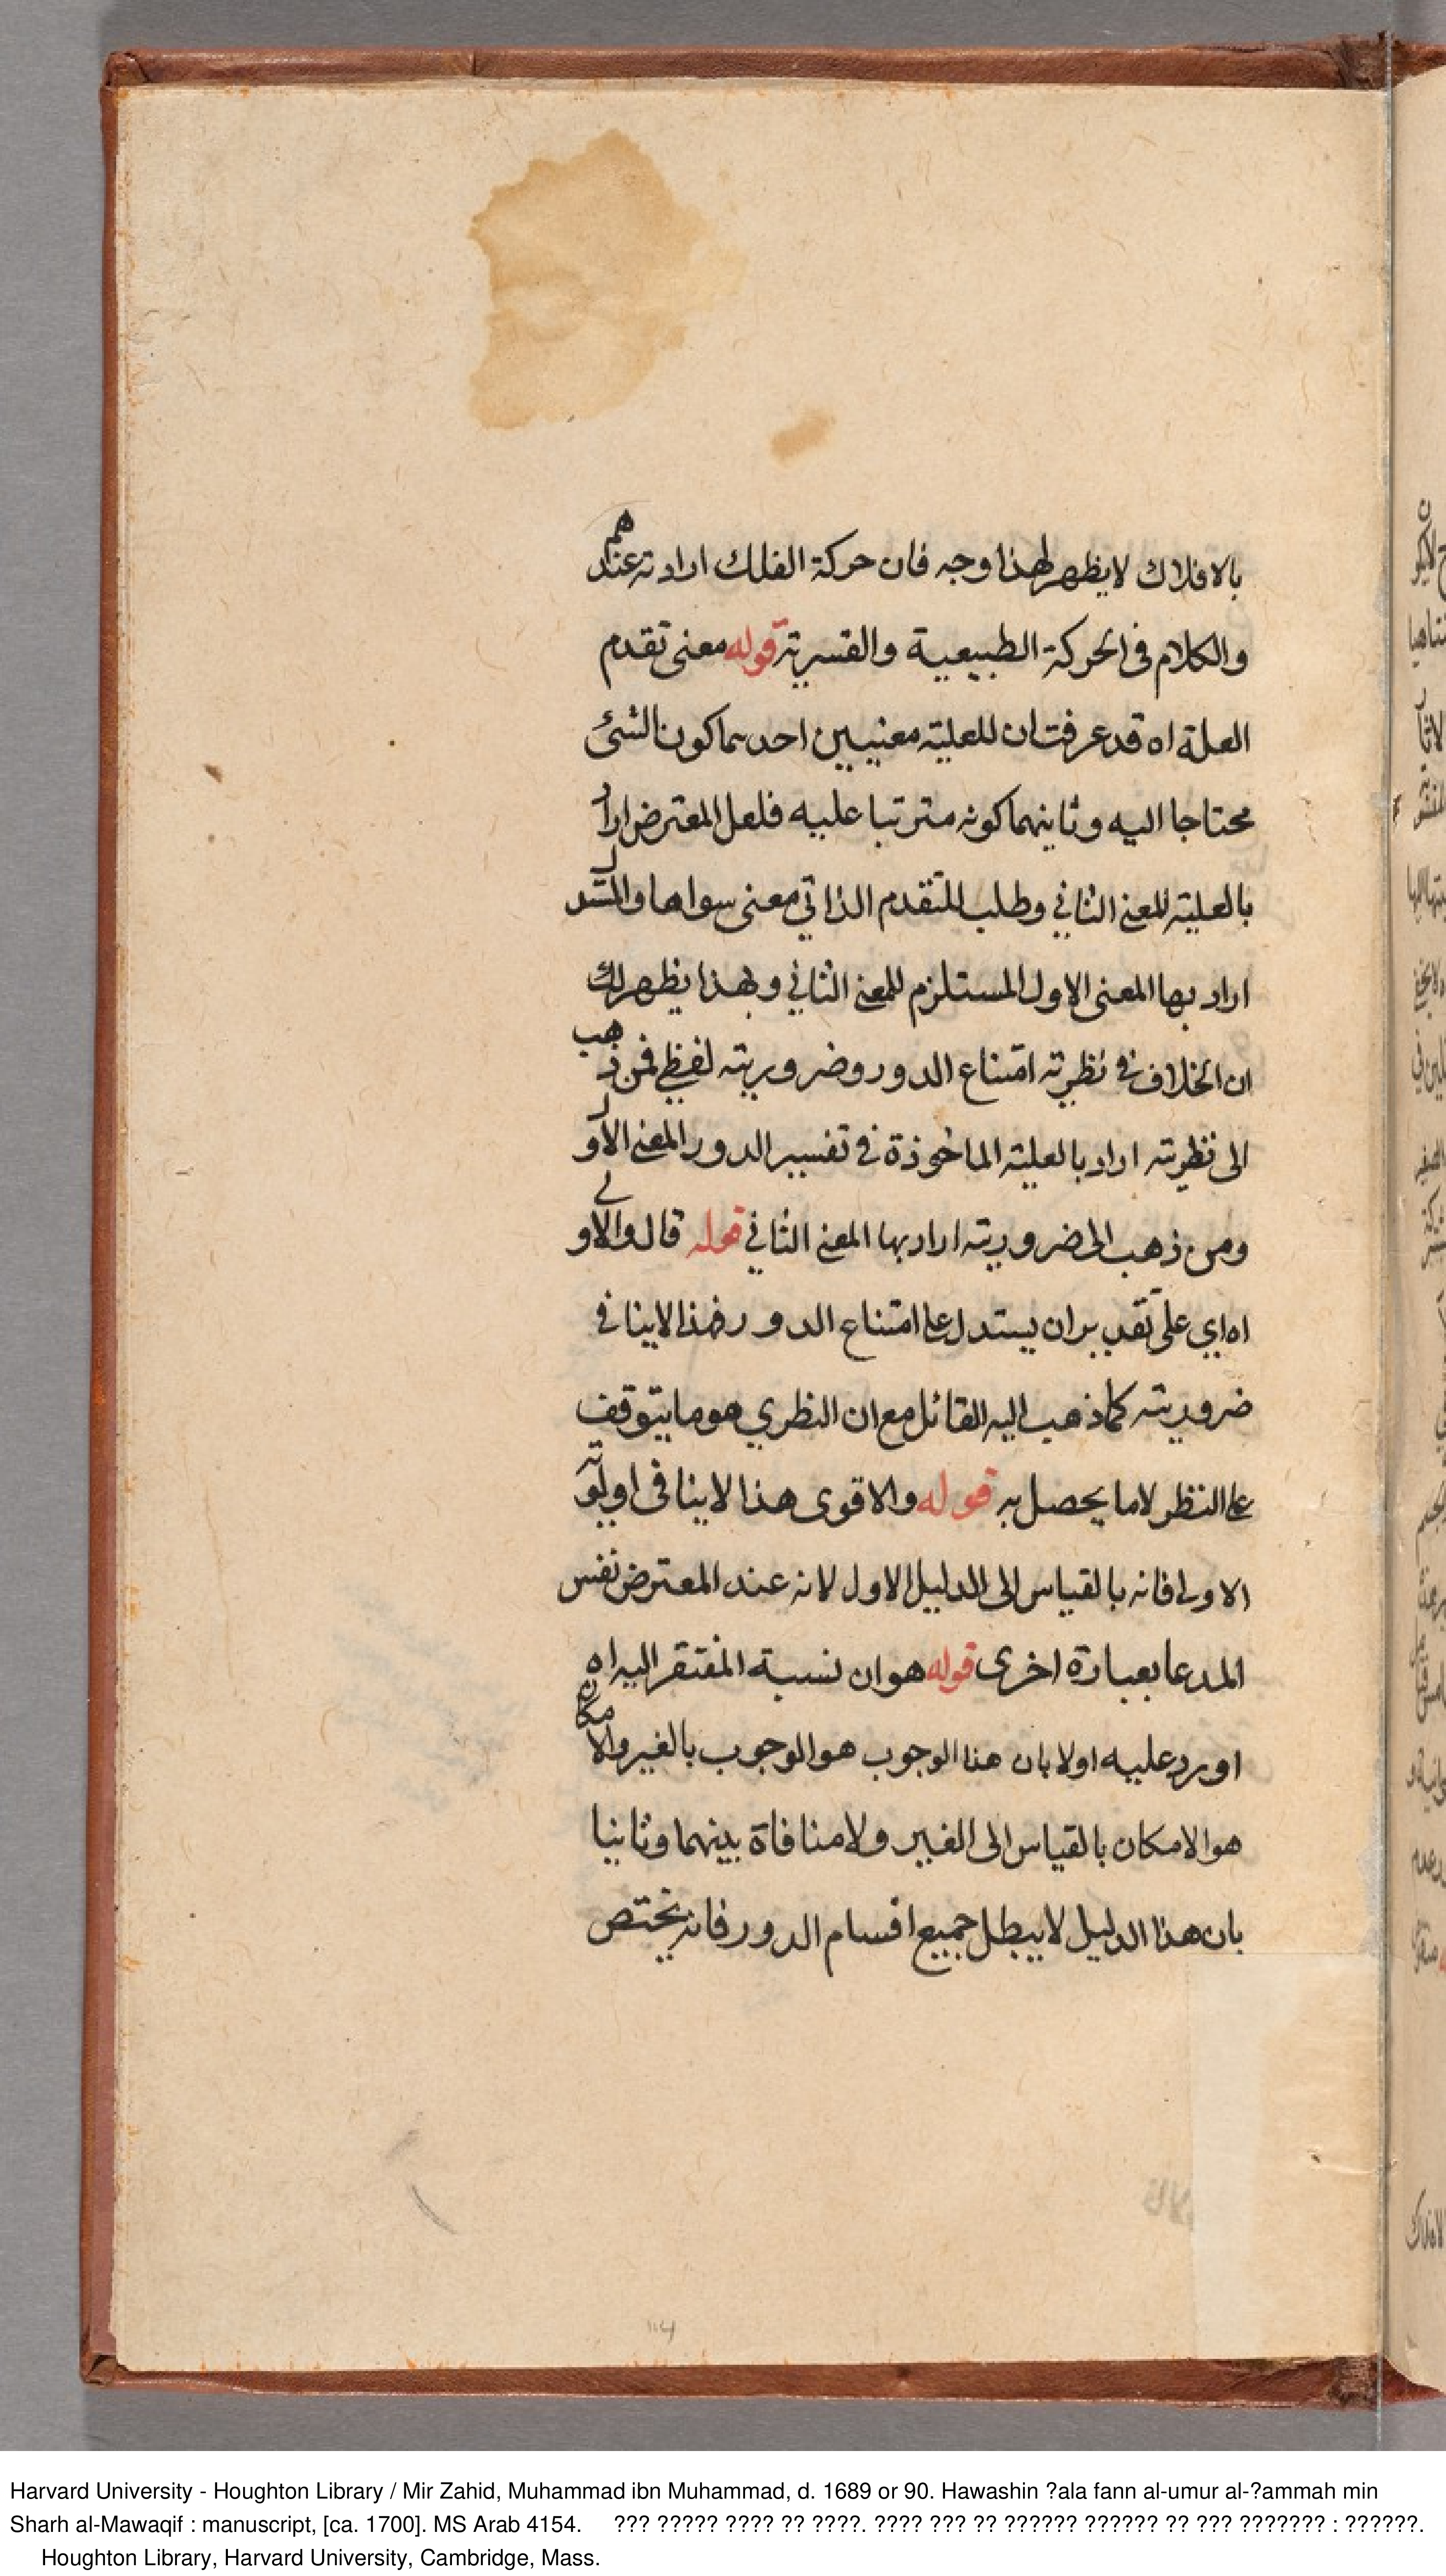 بالافلاك لا يظهر لهذا وجه فان حركة الفلك ارادية عندهم
والكلام فى الحركة الطبيعية والقسرية قوله معنى تقدم
العلة اه قد عرفت ان للعلية معنيين احدهما كون الشئ
محتاجا اليه وثانيهما كونه مترتبا عليه فلعل المعترض اراد
بالعلية المعنى الثاني وطلب للتقدم الذاتي معنى سواها والمستدل
اراد بها المعنى الاول المستلزم للمعنى الثاني وبهذا يظهر لك
ان الخلاف في نظرية امتناع الدور وضروريته لفظي فمن ذهب
الى نظريته اراد بالعلية الماخوذة في تفسير الدور المعنى الاول
ومن ذهب الى ضروريته اراد بها المعنى الثاني قوله قال والاولى
اه اي على تقدير ان يستدل على امتناع الدور وهذا لا ينافي
ضروريته كما ذهب اليه القائل مع ان النظري هو ما يتوقف
على النظر لا ما يحصل به قوله والاقوى هذا لا ينافى اولوية
الاولى فانه بالقياس الى الدليل الاول لانه عند المعترض نفس
المدعا بعبارة اخرى قوله هو ان نسبة المفتقر اليه اه
اورد عليه اولا بان هذا الوجوب هو الوجوب بالغير والامكان
هو الامكان بالقياس الى الغير ولا منافاة بينهما وثانيا
بان هذا الدليل لا يبطل جميع اقسام الدور فانه يختص
Harvard University - Houghton Library / Mir Zahid, Muhammad ibn Muhammad, d. 1689 or 90. Hawashin ?ala fann al-umur al-?ammah min
Sharh al-Mawaqif : manuscript, [ca. 1700]. MS Arab 4154. ??? ????? ???? ?? ????. ???? ??? ?? ?????? ?????? ?? ??? ??????? : ??????.
Houghton Library, Harvard University, Cambridge, Mass.